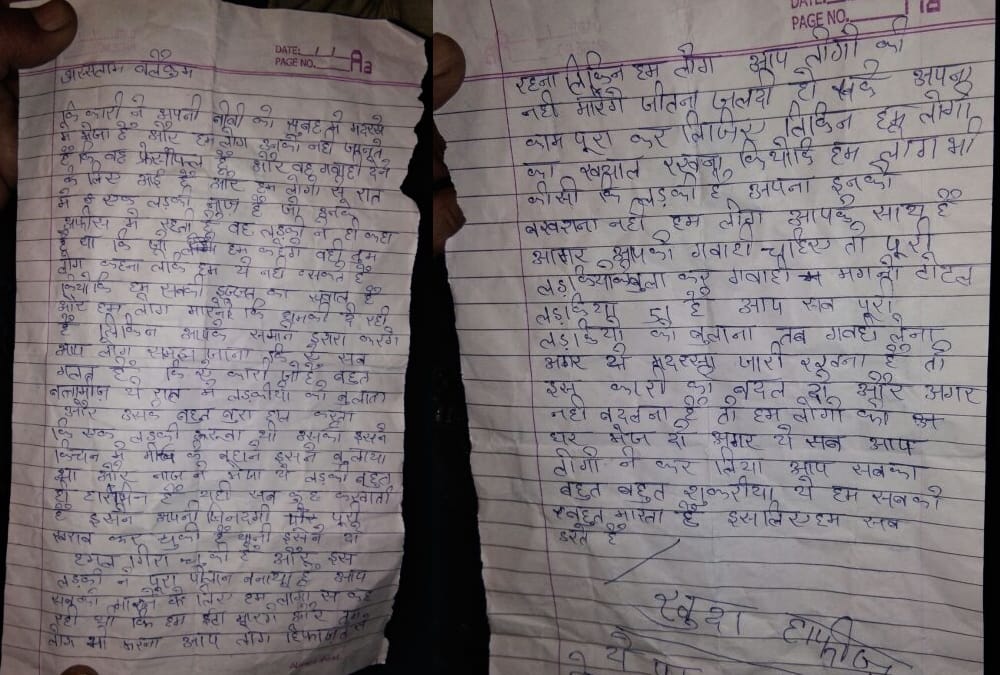 DATE:
PAGE NO.
अस्सलाम वालेकुम
कि कारी ने अपनी बीवी को सुबह मे मदरसे
मे भेजा है और हम लोग उनको नही जानते
है कि वह प्रेंसीपल है और वह गवाही देने
के लिए आई है और हम लोगो
मे के एक लड़की नाज है जो इनके
ऑफीस मे रहती है वह लड़की ने ही कहा
था कि जो हम कहेगे वही तुम
लोग कहना लेकि हम ये नही कसकते है
कियोकि हम सबकी इज्जत का सवाल है
और हम लोग
है लेकिन आपके सामने इसारा करेगे
आप लोग समझ जाना कि ये सब
गलत है कि ये कारी बहुत
ये हाल मे लड़कीयो को बुलाता
और उसके बहुत बुरा हाल करता
कि एक लड़की थी उसको इसने
किचिन मे के बहाने इसने बुलाया
था और नाज ने भेजा ये लड़की बहुत
ही है यही सब कुछ करवाती
है इसने अपनी जिनदगी पूरी
खराब कर चुकी है इसने दो
हमल गिरा चुकी है और इस
लड़की ने पूरा पिलान बनाया है आप
सबको मारने के लिए हम लोगो से कह
रही थी कि हम मारेगे और तुम
लोग भी करना आप लोग हिफाजत
DATE:
PAGE NO.
रहना लेकिन हम लोग आप लोगो को
नही मारेगे जीतना जलदी हो सके अपना
काम पूरा कर लिजिए लेकिन हम लोगो
का खयाल रखना कियोकि हम लोग भी
कीसी कि लड़की है अपना इनको
बखशना नही हम लोग आपके साथ है
आगर आपको गवाही चाहिए तो पूरी
लड़कियो को बुला कर गवाही मगना टोटल
लड़किया है आप सब पूरी
लड़कियो को बुलाना तब गवाही लेना
अगर ये मदरसा जारी रखना है तो
इस कारी को बदल दो और अगर
नही बदलना है तो हम लोगो को
घर भेज दो अगर ये सब आप
लोगो ने कर लिया आप सबका
बहुत बहुत शुकरीया ये हम सबको
बहुत मारता है इसलिए हम सब
डरते है
खुदा हाफीज